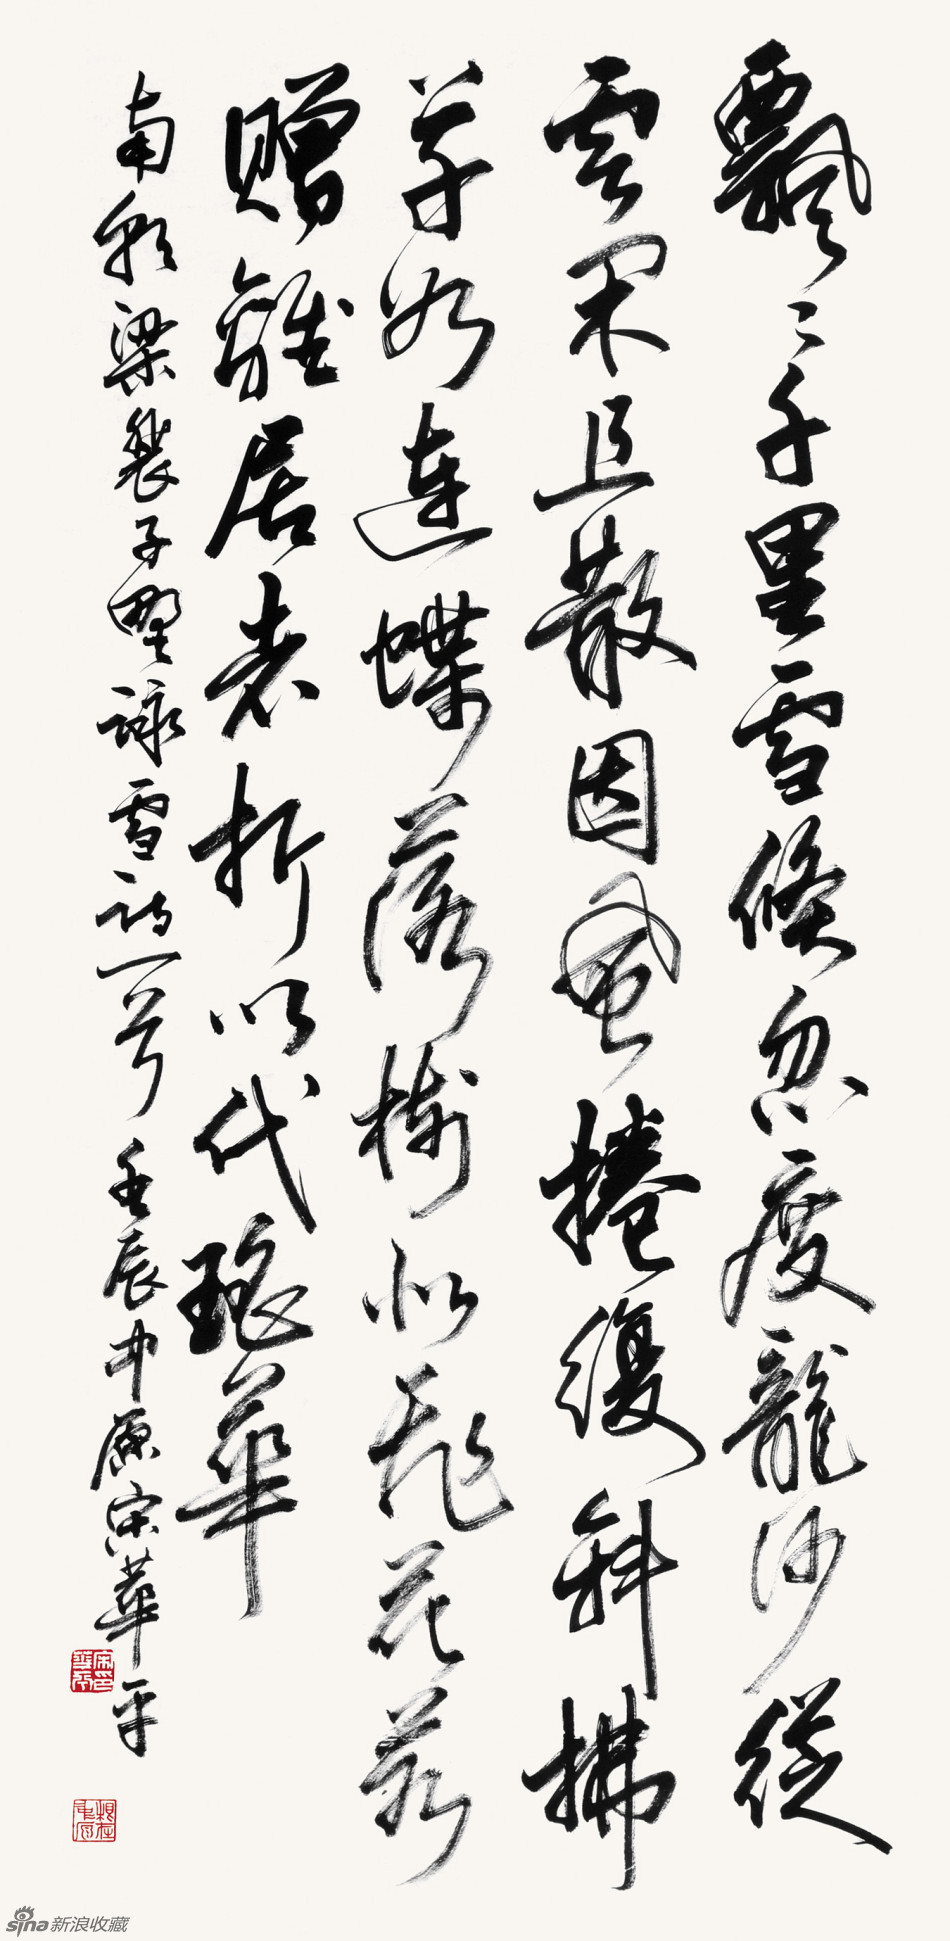 飄〻千里雪倏忽度龍沙從
雲且散因風捲復斜拂
草如連蝶落樹似飛花若
贈離居者折以代瑤華
南朝梁裴子野詠雪詩一首 壬辰中原宋華平
宋印華平
sina新浪收藏